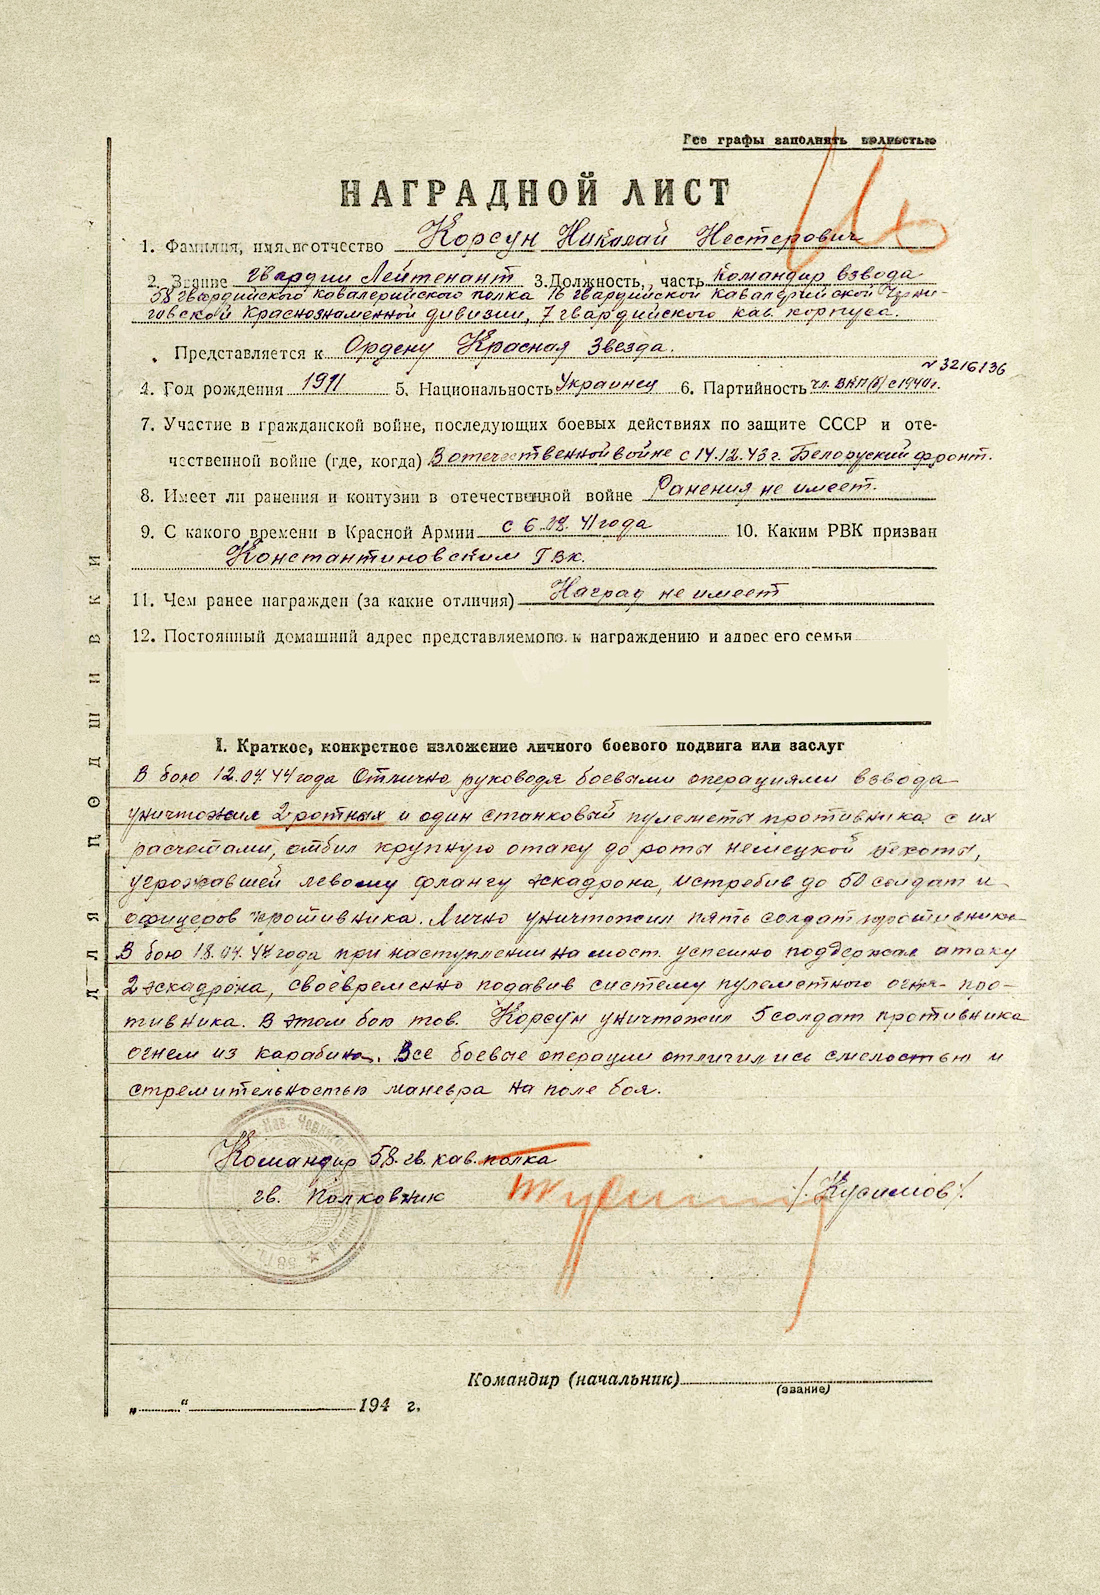 Все графы заполнять полностью
НАГРАДНОЙ ЛИСТ
1. Фамилия, имя и отчество Корсун Николай Нестерович
2. Звание гвардии Лейтенант 3. Должность, часть Командир взвода
58 гвардийского кавалерийского полка 16 гвардийской Кавалерийской Черни-
говской Краснознаменной дивизии, 7 гвардийского кав. корпуса.
Представляется к Ордену Красная Звезда.
№ 3216136
4. Год рождения 1911 5. Национальность Украинец 6. Партийность чл. ВКП(б) с 1940г.
7. Участие в гражданской войне, последующих боевых действиях по защите СССР и оте-
чественной войне (где, когда) В отечественной войне с 14.12.43 г. Белоруский фронт.
8. Имеет ли ранения и контузии в отечественной войне Ранения не имеет.
9. С какого времени в Красной Армии с 6 41 года 10. Каким РВК призван
Константиновским ГВК.
11. Чем ранее награжден (за какие отличия) Наград не имеет
12. Постоянный домашний адрес представляемого к награждению и адрес его семьи
I. Краткое, конкретное изложение личного боевого подвига или заслуг
В бою 12.04.44 года Отлично руководя боевыми операциями взвода
уничтожил 2 ротных и один станковый пулеметы противника с их
расчетами, отбил крупную атаку до роты немецкой пехоты,
угрожавшей левому флангу эскадрона, истребив до 50 солдат и
офицеров противника. Лично уничтожил пять солдат противника
В бою 18.04.44 года при наступлении на мост успешно поддержал атаку
2 эскадрона, своевременно подавив систему пулеметного огня про-
тивника. В этом бою тов. Корсун уничтожил 5 солдат противника
огнем из карабина. Все боевые операции отличились смелостью и
стремительностью маневра на поле боя.
Командир 58. гв. кав. полка
гв. полковник /Кусимов/.
Командир (начальник)
(звание)
„ “ 194 г.
ДЛЯ ПОДШИВКИ